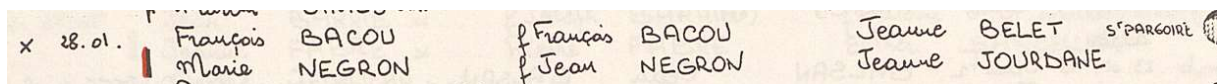 x 28.01. François BACOU f François BACOU Jeanne BELET St PARGOIRE
Marie NEGRON f Jean NEGRON Jeanne JOURDANE